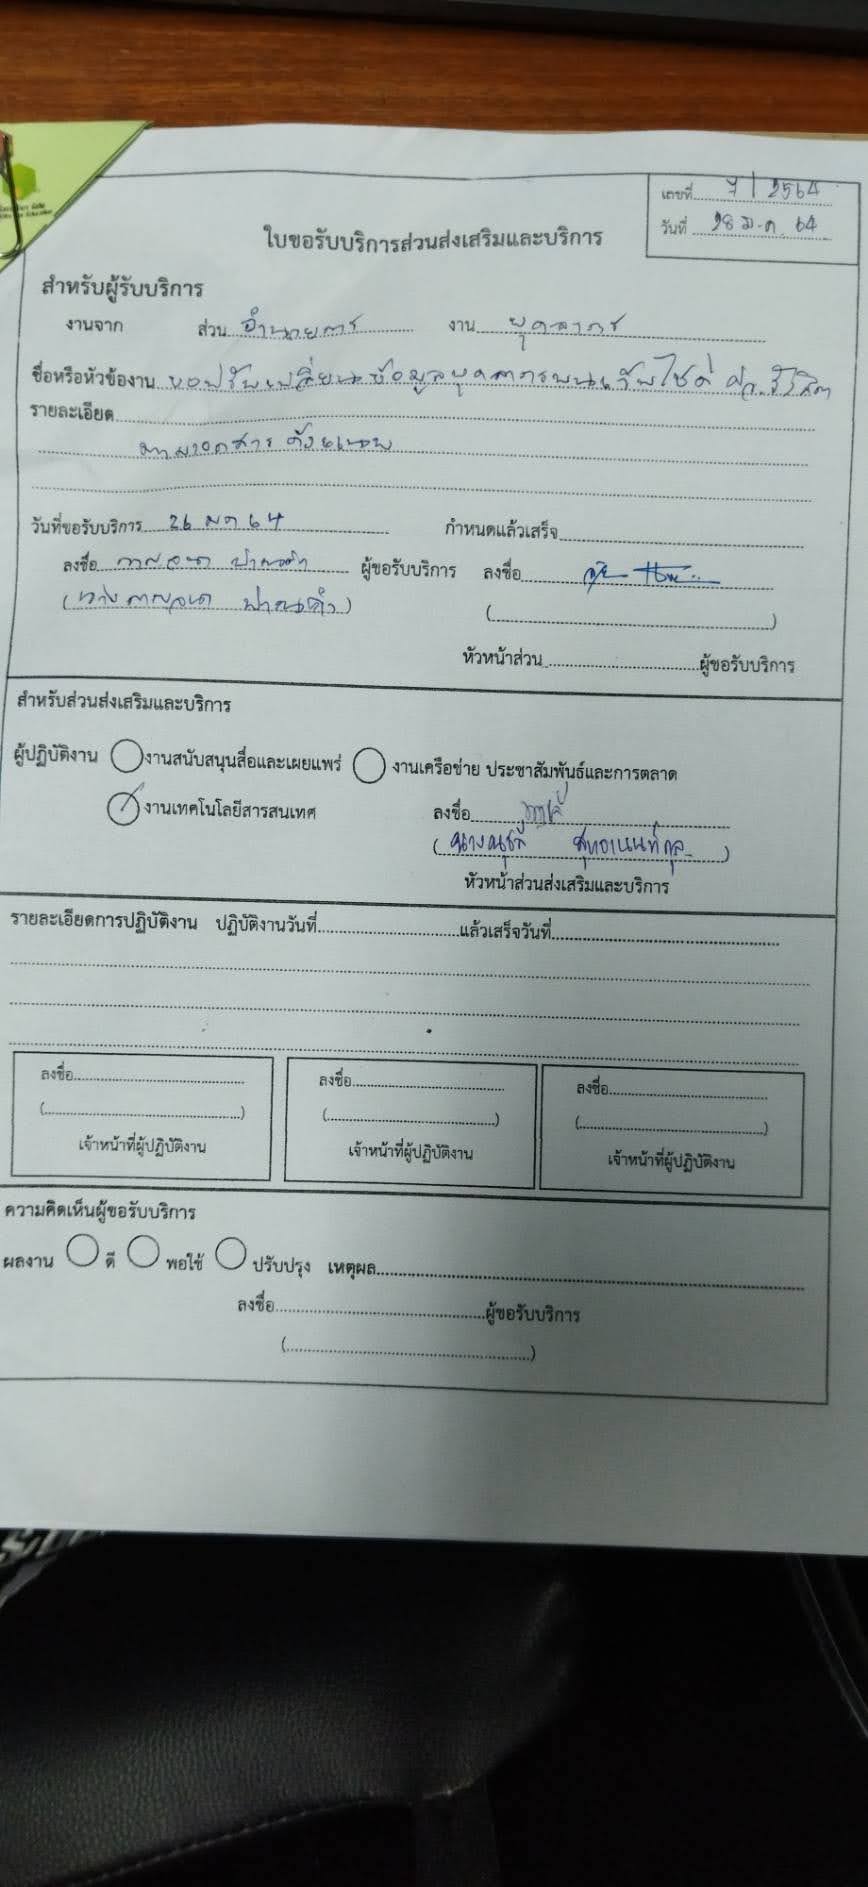 เลขที่ 7/2564
วันที่ 28 ม.ค. 64
ใบขอรับบริการส่วนส่งเสริมและบริการ
สำหรับผู้รับบริการ
งานจาก ส่วน อำนวยการ งาน บุคลากร
ชื่อหรือหัวข้องาน ขอปรับเปลี่ยนข้อมูลบุคลากรบนเว็บไซต์ ศว.รังสิต
รายละเอียด
ตามเอกสาร ดังแนบ
วันที่ขอรับบริการ 26 มค 64 กำหนดแล้วเสร็จ
ลงชื่อ ผู้ขอรับบริการ ลงชื่อ
(นางกาญจนา )
(
)
หัวหน้าส่วน ผู้ขอรับบริการ
สำหรับส่วนส่งเสริมและบริการ
ผู้ปฏิบัติงาน งานสนับสนุนสื่อและเผยแพร่ งานเครือข่าย ประชาสัมพันธ์และการตลาด
งานเทคโนโลยีสารสนเทศ ลงชื่อ
(นาง )
หัวหน้าส่วนส่งเสริมและบริการ
รายละเอียดการปฏิบัติงาน ปฏิบัติงานวันที่ แล้วเสร็จวันที่
ลงชื่อ ลงชื่อ ลงชื่อ
( ) ( ) ( )
เจ้าหน้าที่ผู้ปฏิบัติงาน เจ้าหน้าที่ผู้ปฏิบัติงาน เจ้าหน้าที่ผู้ปฏิบัติงาน
ความคิดเห็นผู้ขอรับบริการ
ผลงาน ดี พอใช้ ปรับปรุง เหตุผล
ลงชื่อ ผู้ขอรับบริการ
( )